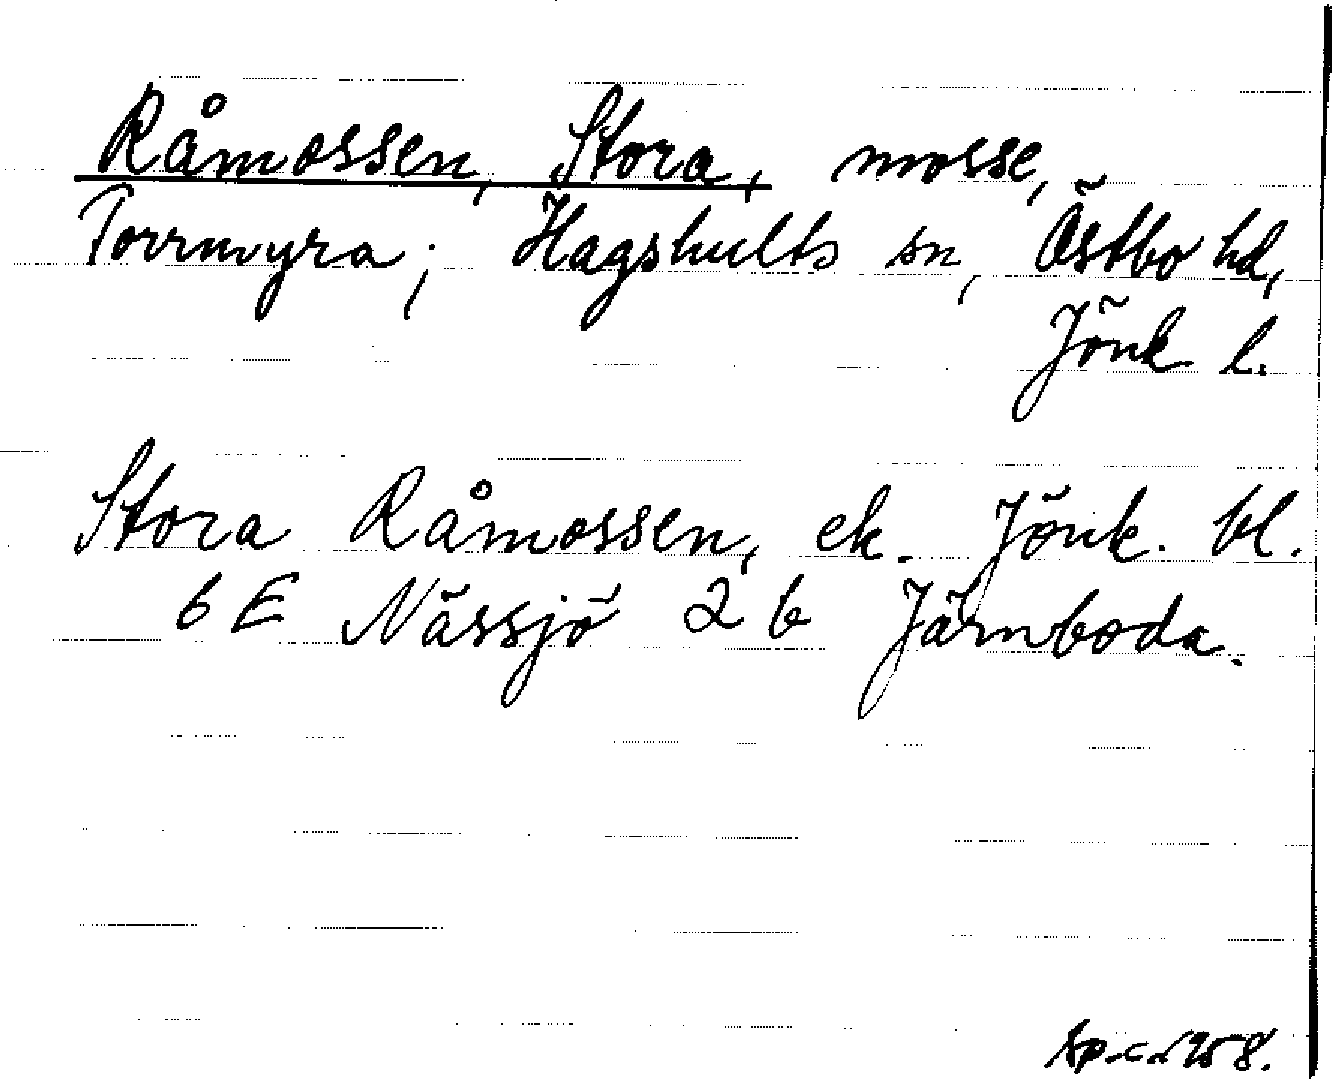 Råmossen, Stora, mosse,
Torrmyra; Hagshults sn, Östbo hd,
Jönk l.
Stora Råmossen, ek. Jönk. bl.
6 E Nässjö 2 b Järnboda.